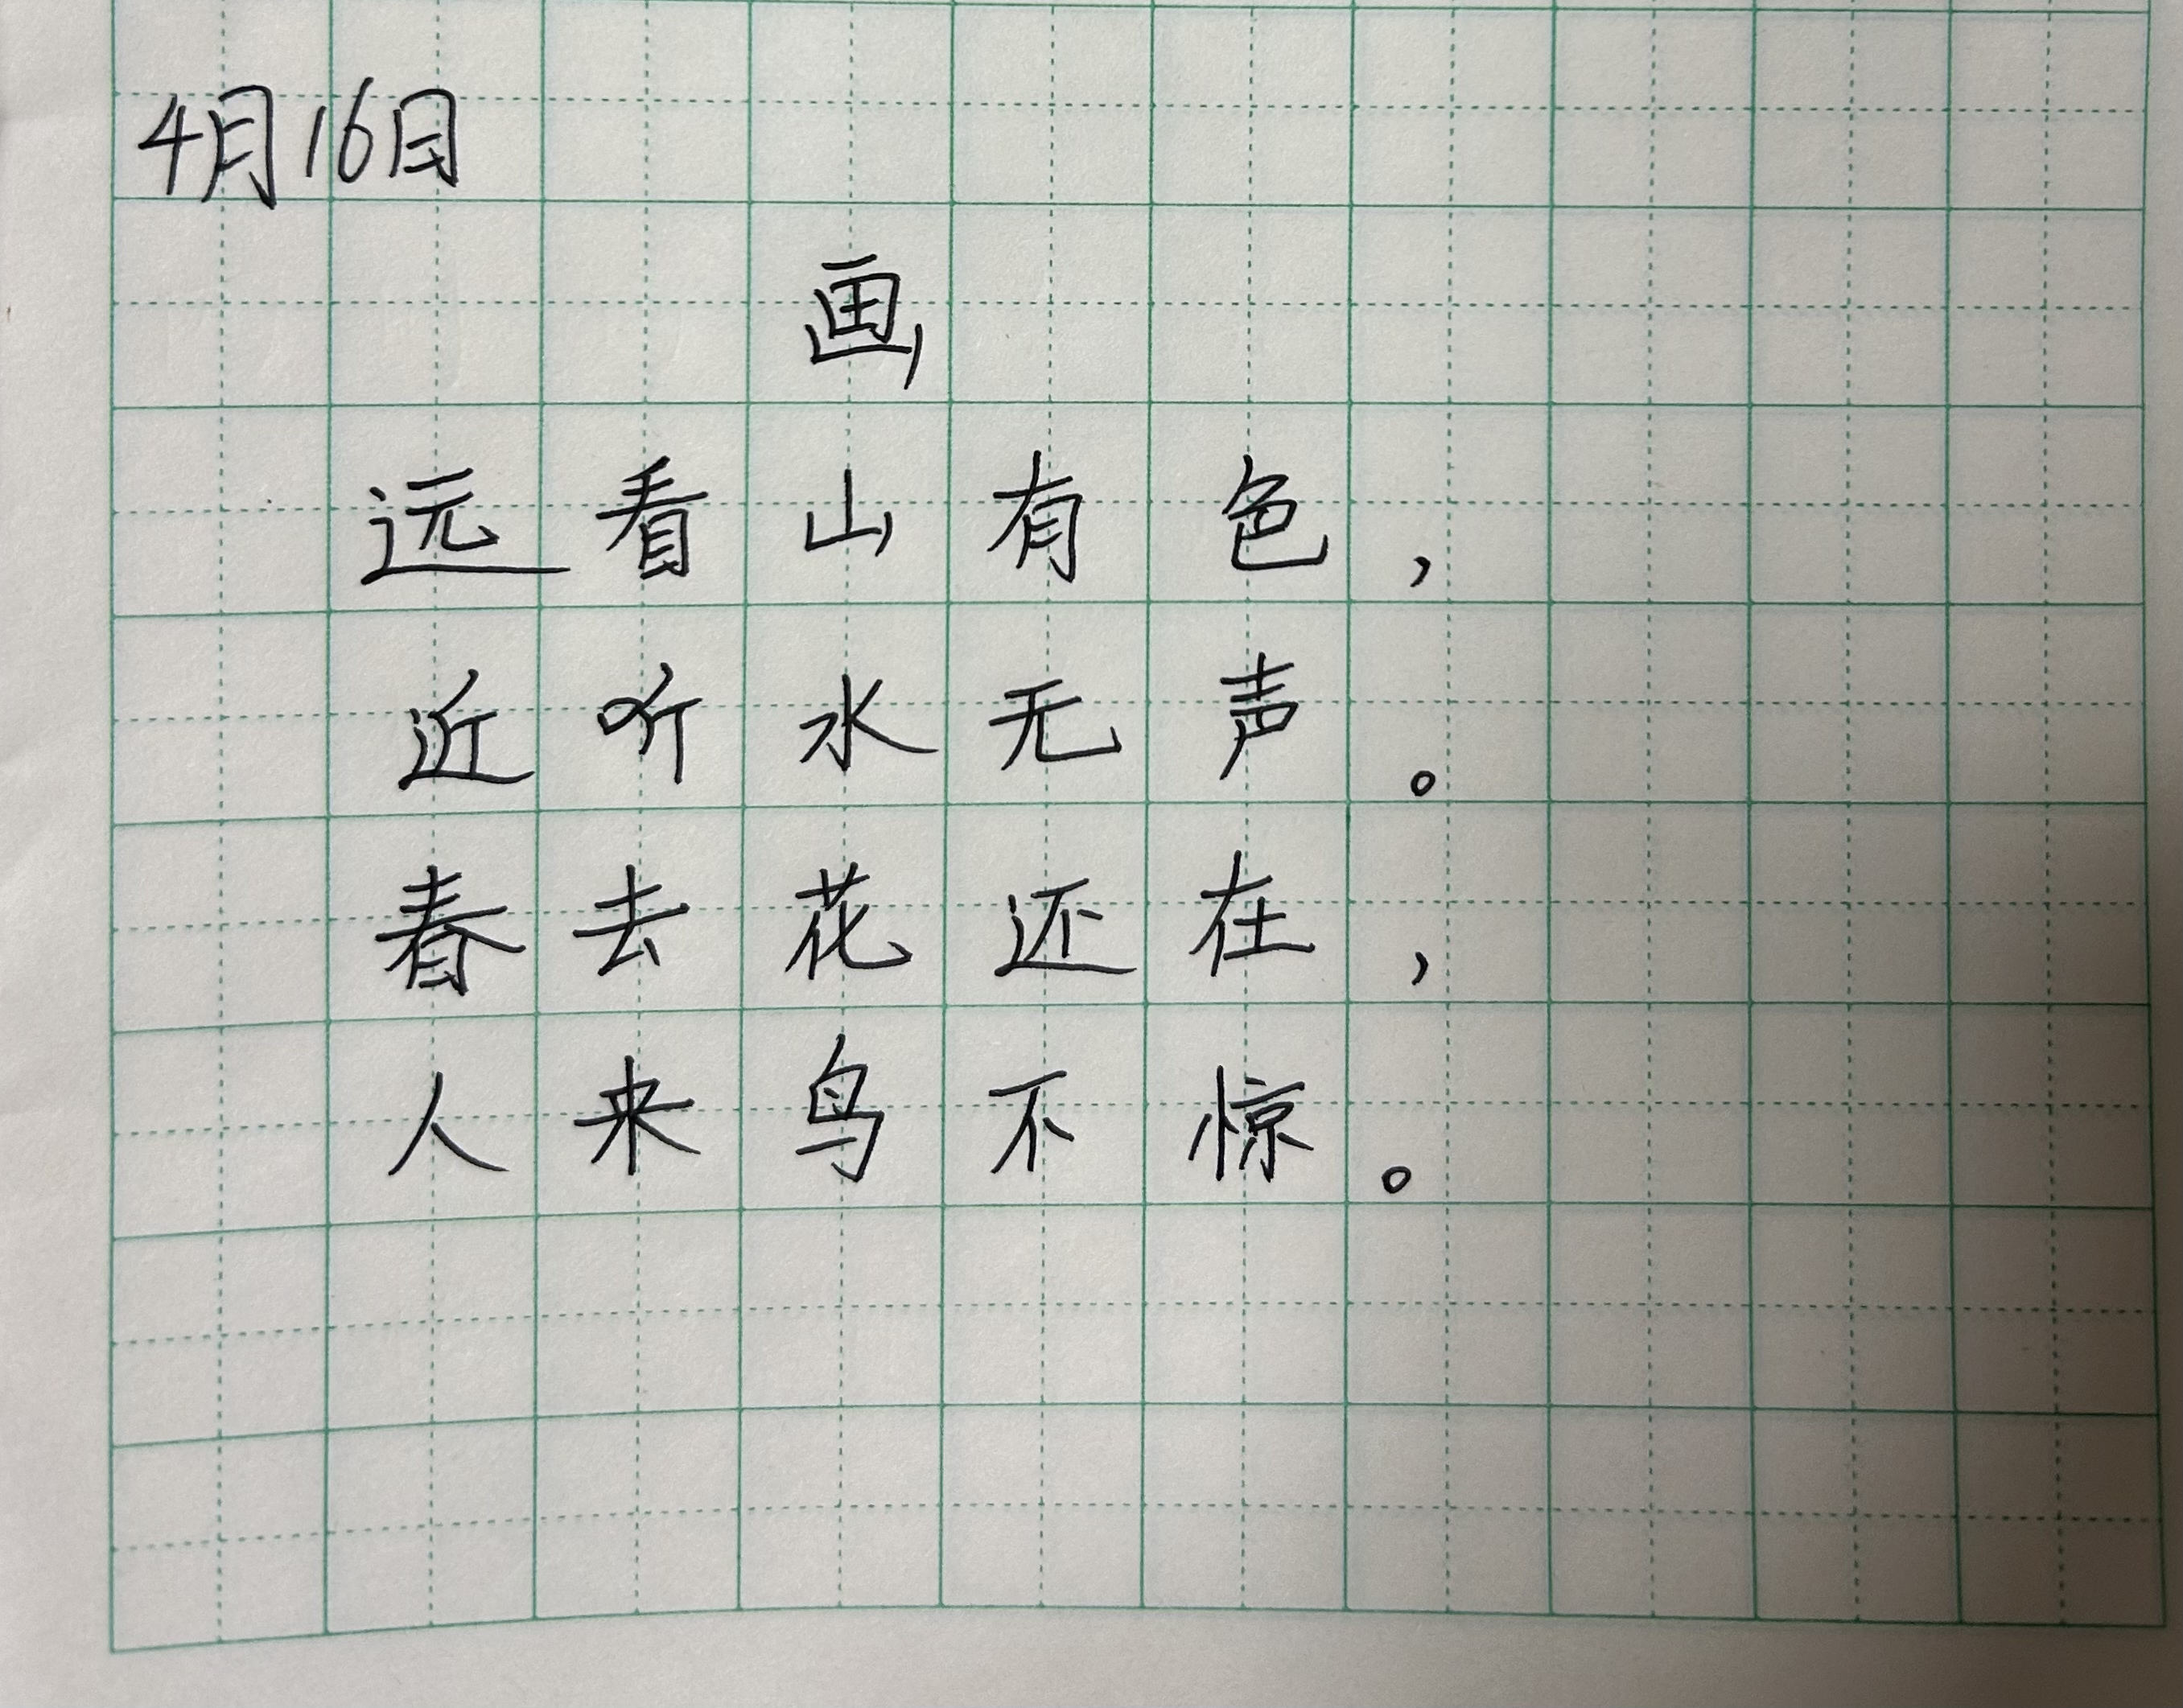 4月16日
画
远看山有色，
近听水无声。
春去花还在，
人来鸟不惊。